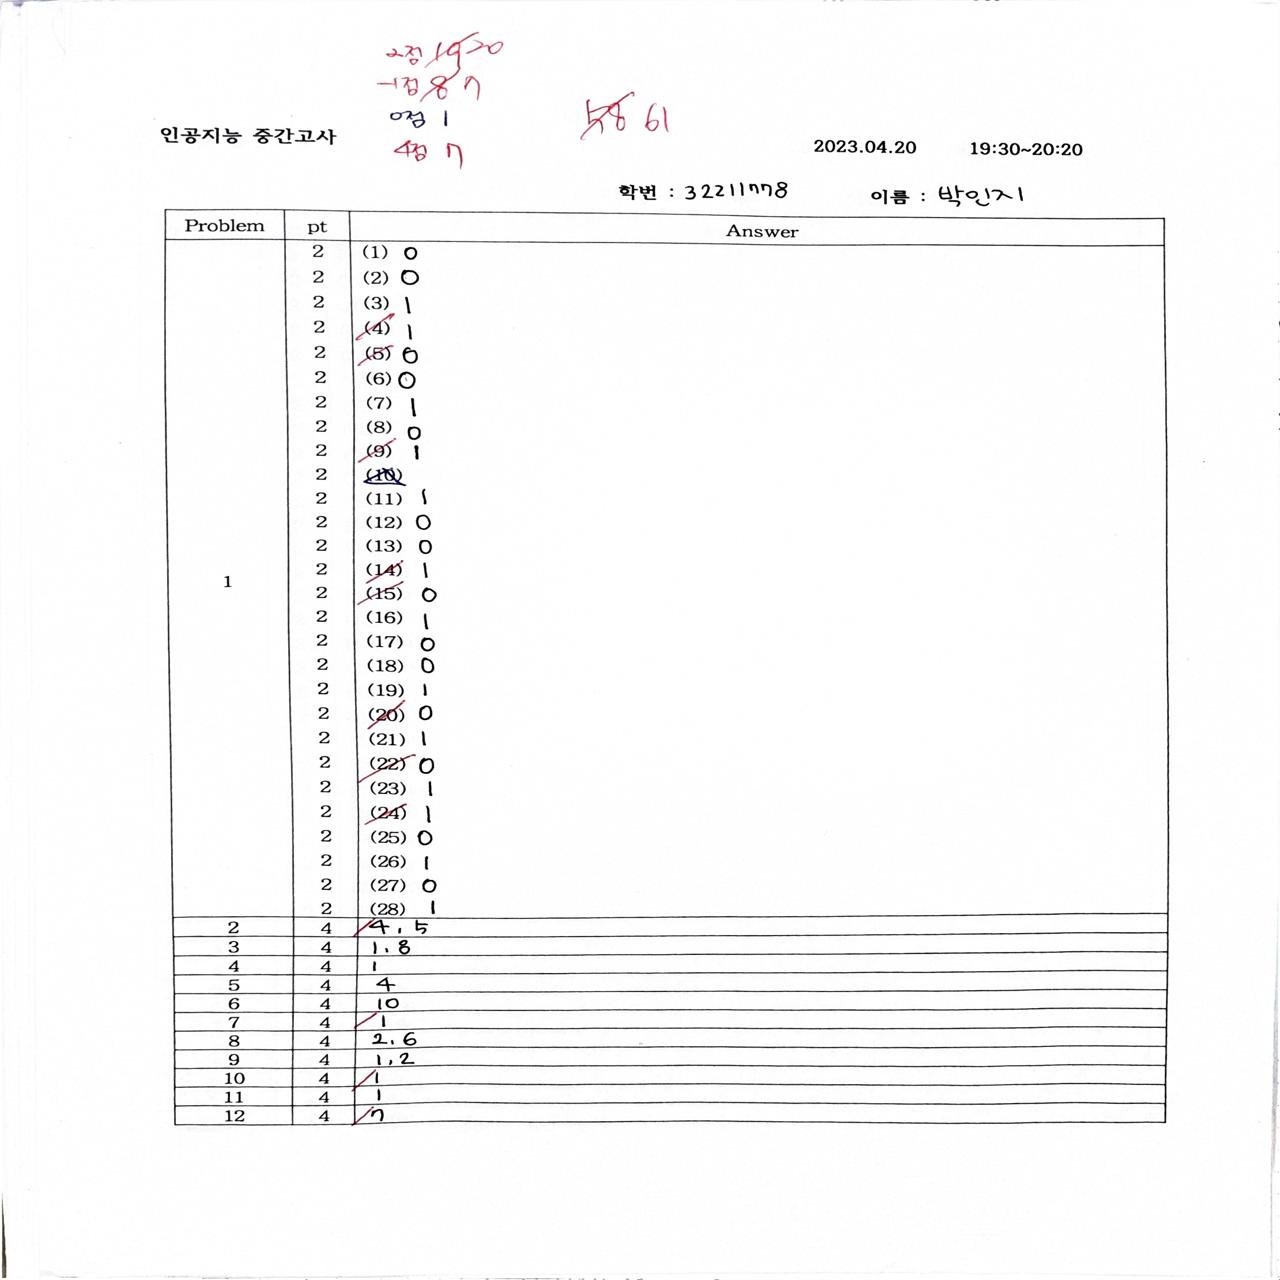 2점 19 20
-1점 8 7
0점 1
4점 7
58 61
인공지능 중간고사
2023.04.20 19:30~20:20
학번 : 32211778 이름 : 박인지
Problem pt Answer
1
2 (1) 0
2 (2) 0
2 (3) 1
2 (4) 1
2 (5) 0
2 (6) 0
2 (7) 1
2 (8) 0
2 (9) 1
2 (10)
2 (11) 1
2 (12) 0
2 (13) 0
2 (14) 1
2 (15) 0
2 (16) 1
2 (17) 0
2 (18) 0
2 (19) 1
2 (20) 0
2 (21) 1
2 (22) 0
2 (23) 1
2 (24) 1
2 (25) 0
2 (26) 1
2 (27) 0
2 (28) 1
2 4 4, 5
3 4 1, 8
4 4 1
5 4 4
6 4 10
7 4 1
8 4 2, 6
9 4 1, 2
10 4 1
11 4 1
12 4 7